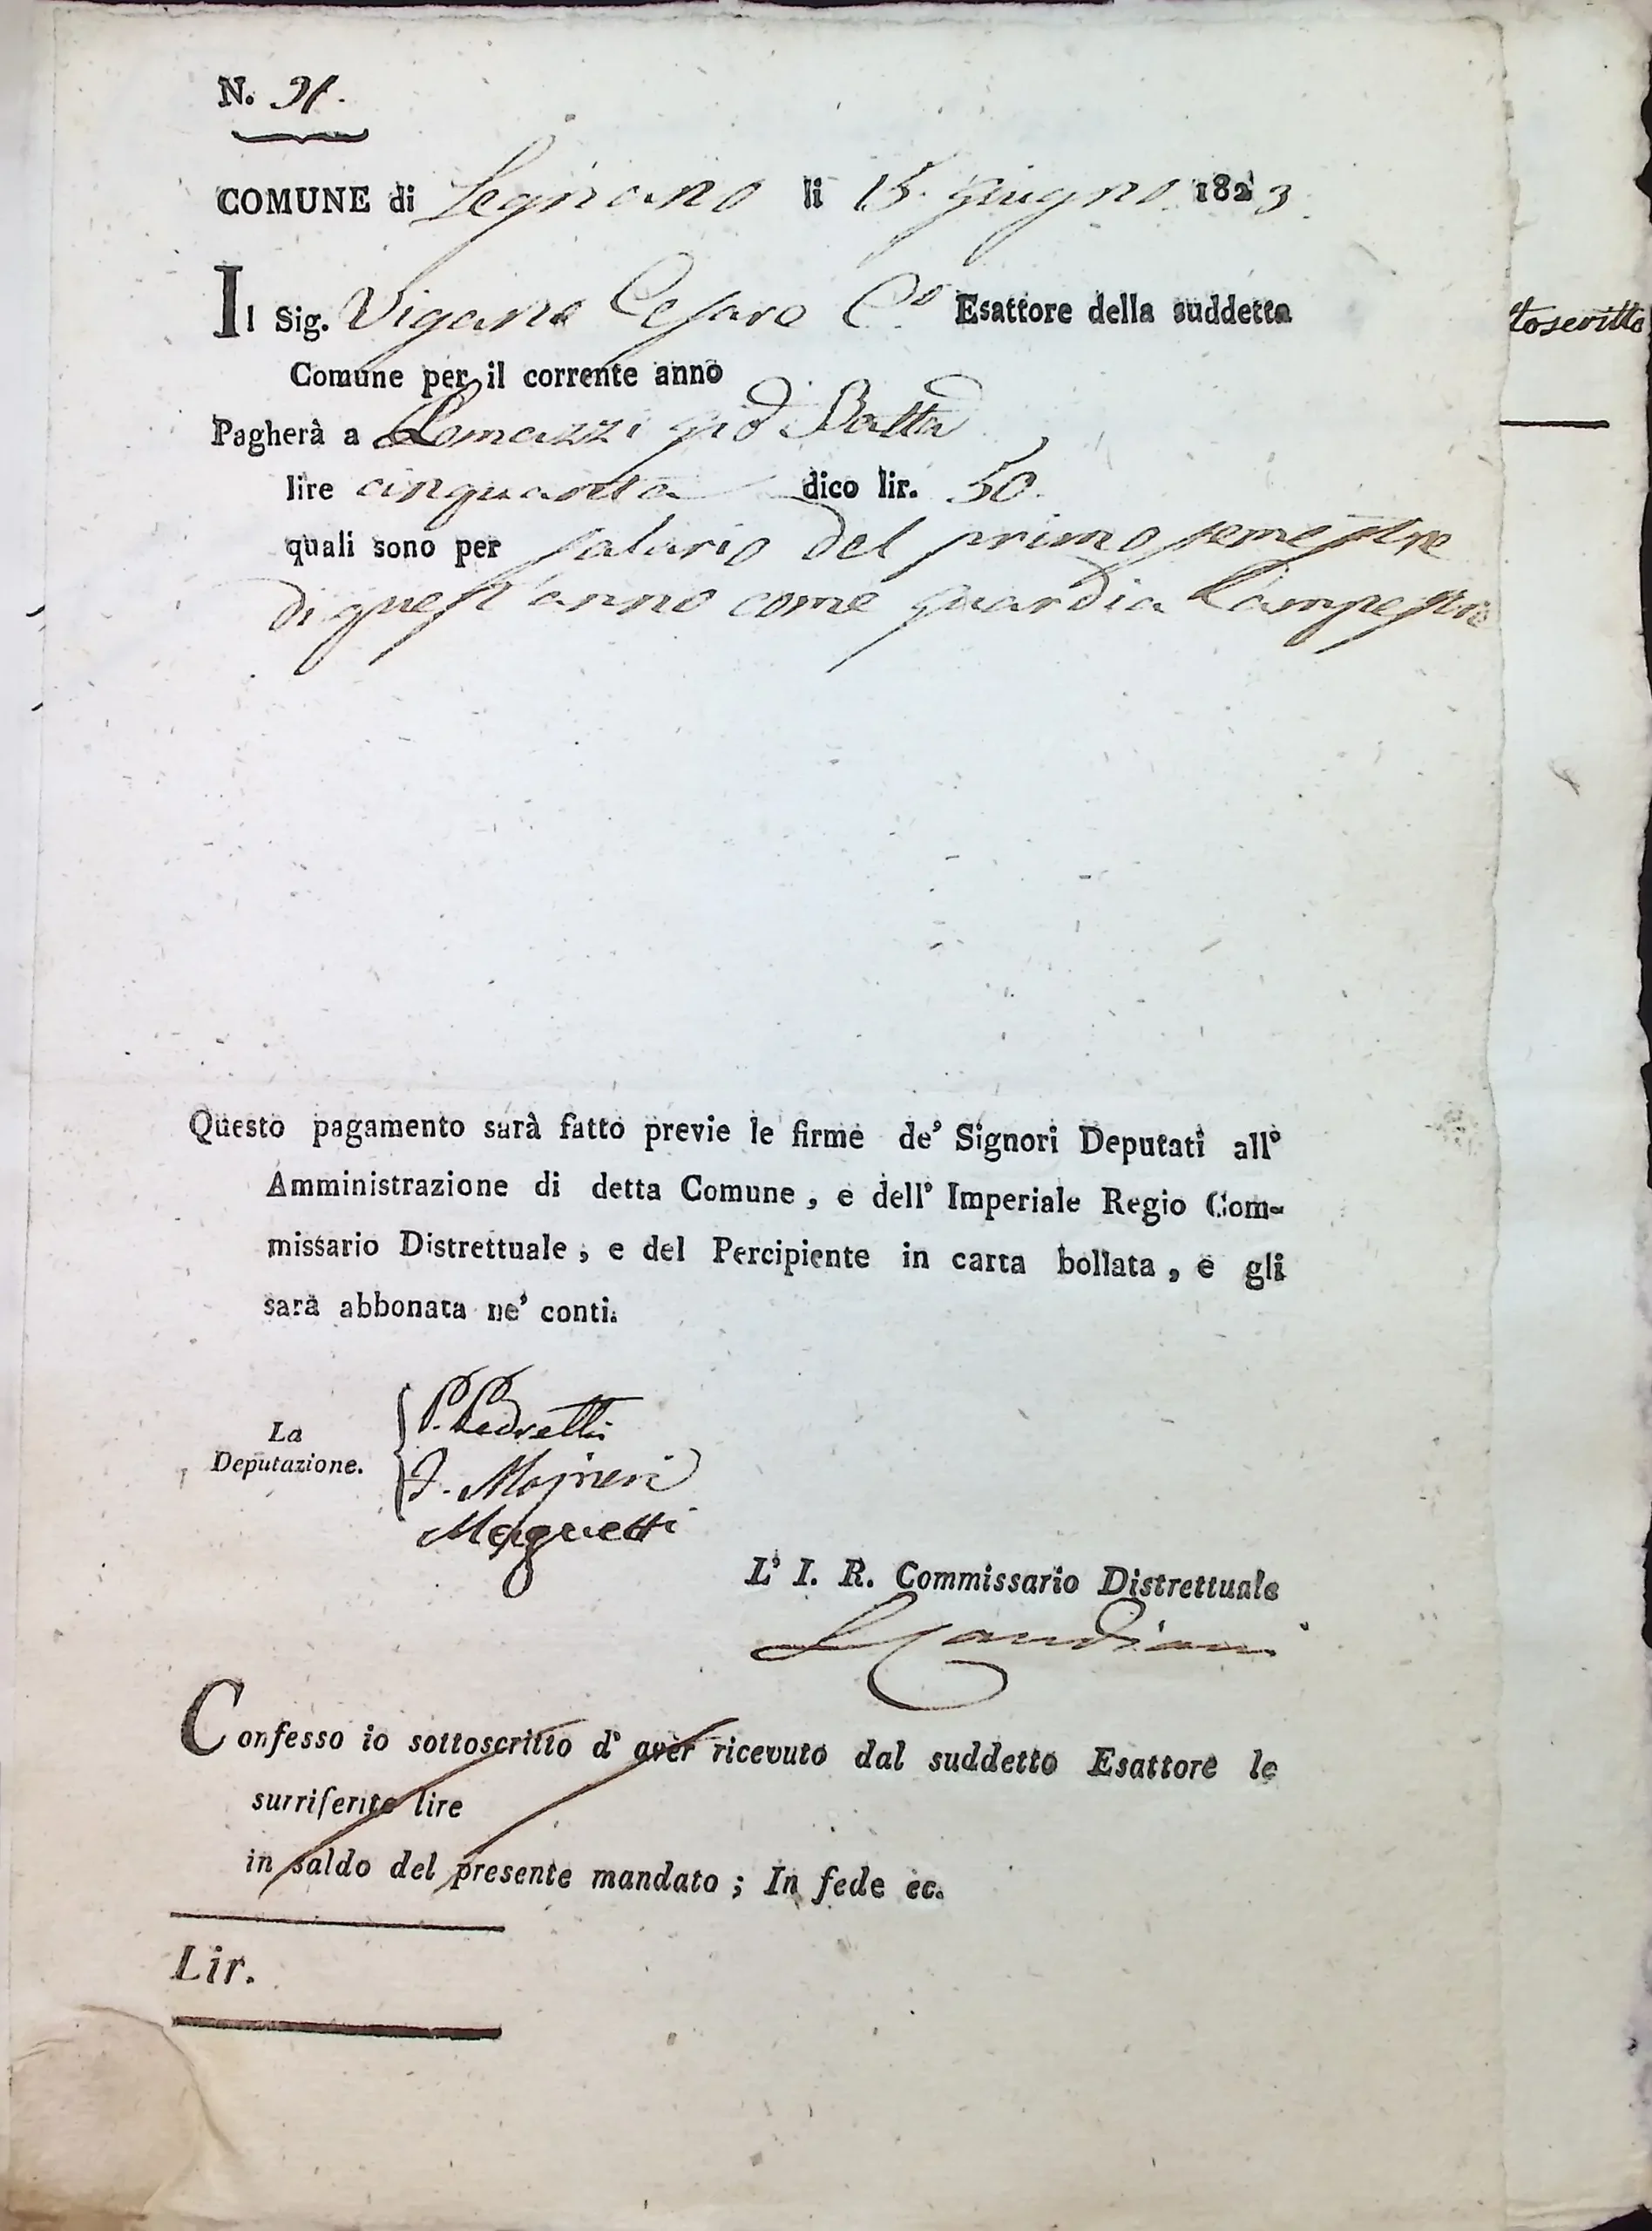 N. 31.
COMUNE di Legnano li 15. giugno 1823.
Il Sig. Vigano Cesare C.o Esattore della suddetta
toscritto
Comune per il corrente anno
Pagherà a Lomazzi Gio Batta
lire cinquanta dico lir. 50.
quali sono per salario del primo semestre
di quest'anno come guardia Campestre
Questo pagamento sarà fatto previe le firme de' Signori Deputati all'
Amministrazione di detta Comune, e dell' Imperiale Regio Com-
missario Distrettuale, e del Percipiente in carta bollata, e gli
sarà abbonata ne' conti.
La
Deputazione.
P. Pedretti
Magnetti
L' I. R. Commissario Distrettuale
Confesso io sottoscritto d' aver ricevuto dal suddetto Esattore le
surriferite lire
in saldo del presente mandato; In fede ec.
Lir.